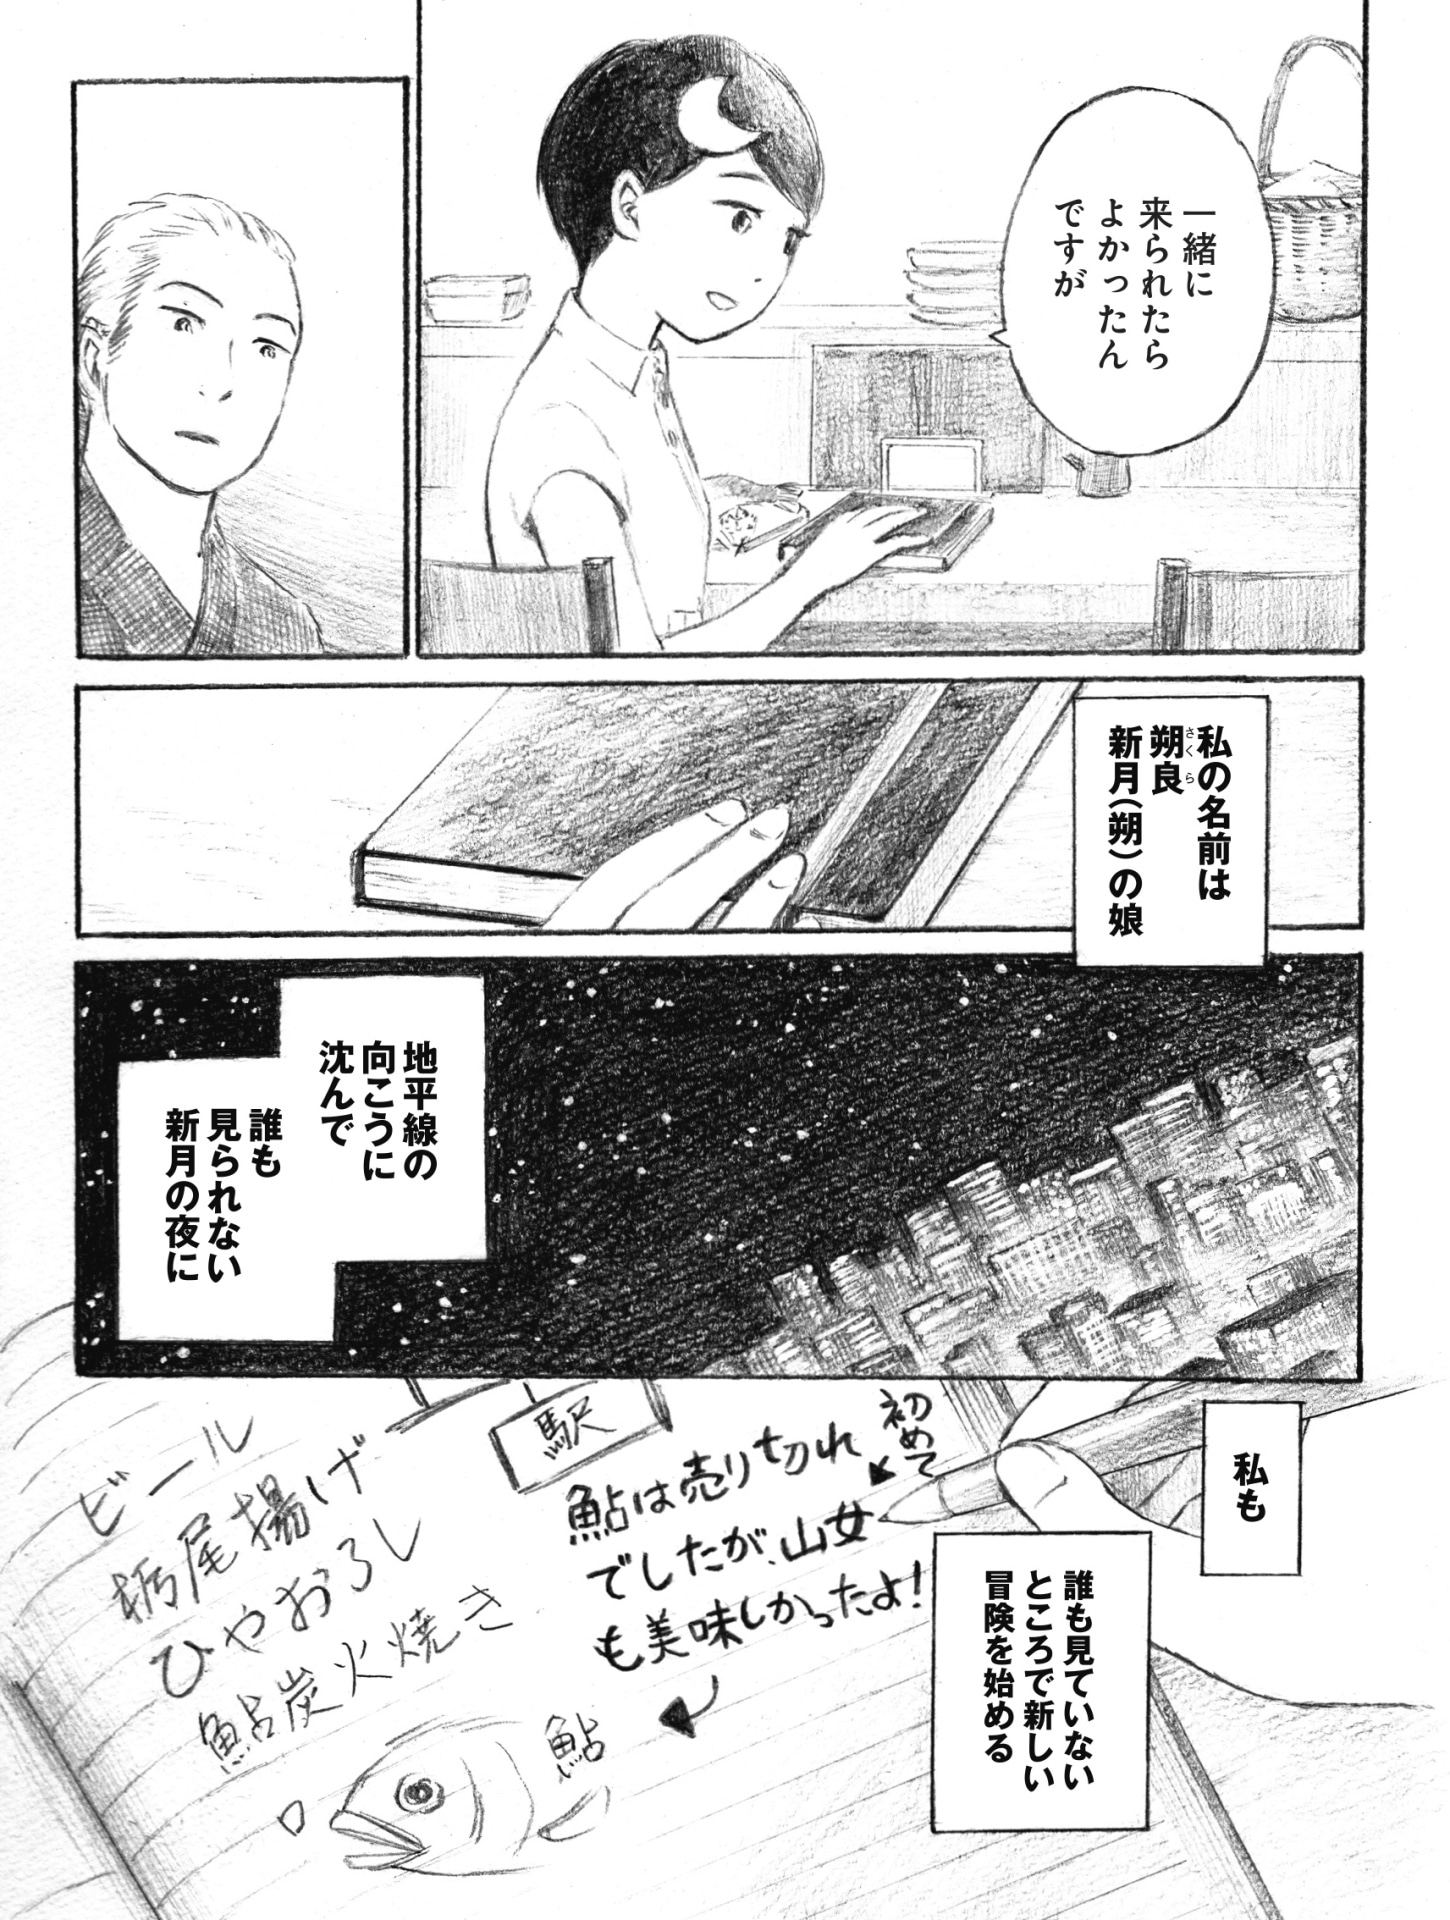 一緒に
来られたら
よかったん
ですが
私の名前は
朔良
さくら
新月(朔)の娘
地平線の
向こうに
沈んで
誰も
見られない
新月の夜に
私も
誰も見ていない
ところで新しい
冒険を始める
駅
初めて
鮎は売り切れ
でしたが、山女
も美味しかったよ!
ビール
栃尾揚げ
ひやおろし
鮎炭火焼き
鮎